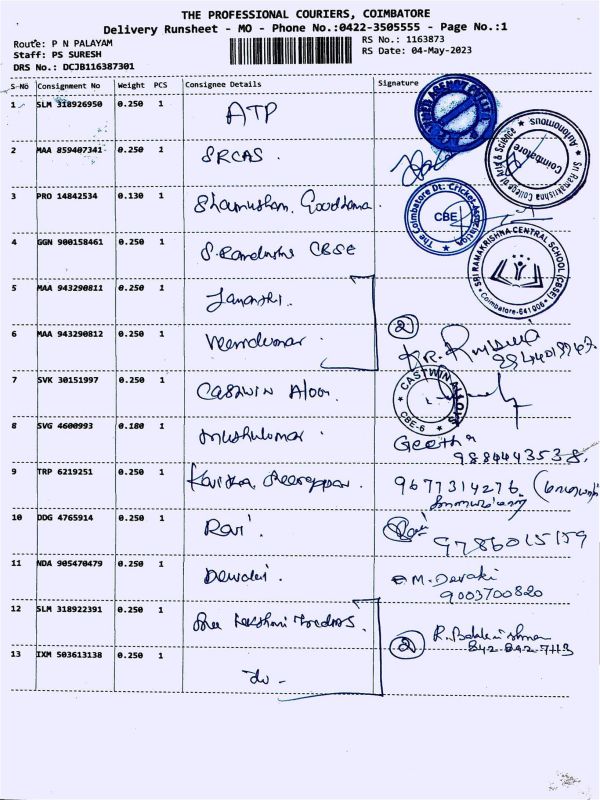 THE PROFESSIONAL COURIERS, COIMBATORE
Delivery Runsheet - MO - Phone No.:0422-3505555 - Page No.:1
Route: P N PALAYAM
RS No.: 1163873
Staff: PS SURESH
RS Date: 04-May-2023
DRS No.: DCJB116387301
S-No Consignment No Weight PCS Consignee Details Signature
1 SLM 318926950 0.250 1 ATP
2 MAA 859407341 0.250 1 SRCAS
Sri Ramakrishna College of Arts & Science Coimbatore Autonomous
3 PRO 14842534 0.130 1
The Coimbatore Dt. Cricket Association CBE
4 GGN 900158461 0.250 1 CBSE
SRI RAMAKRISHNA CENTRAL SCHOOL (CBSE) Coimbatore-641006
5 MAA 943290811 0.250 1
6 MAA 943290812 0.250 1 2
7 SVK 30151997 0.250 1 CASTWIN
CASTWIN ALLOYS CBE-6
8 SVG 4600993 0.180 1 Muthukumar Geetha
9884443538
9 TRP 6219251 0.250 1 9677314276
10 DDG 4765914 0.250 1 Ravi Ravi
9786015159
11 NDA 905470479 0.250 1 Devaki M. Devaki
9003700820
12 SLM 318922391 0.250 1 Sree Lakshmi Traders 2 R. Balakrishnan
842 842 7113
13 IXM 503613138 0.250 1 do -